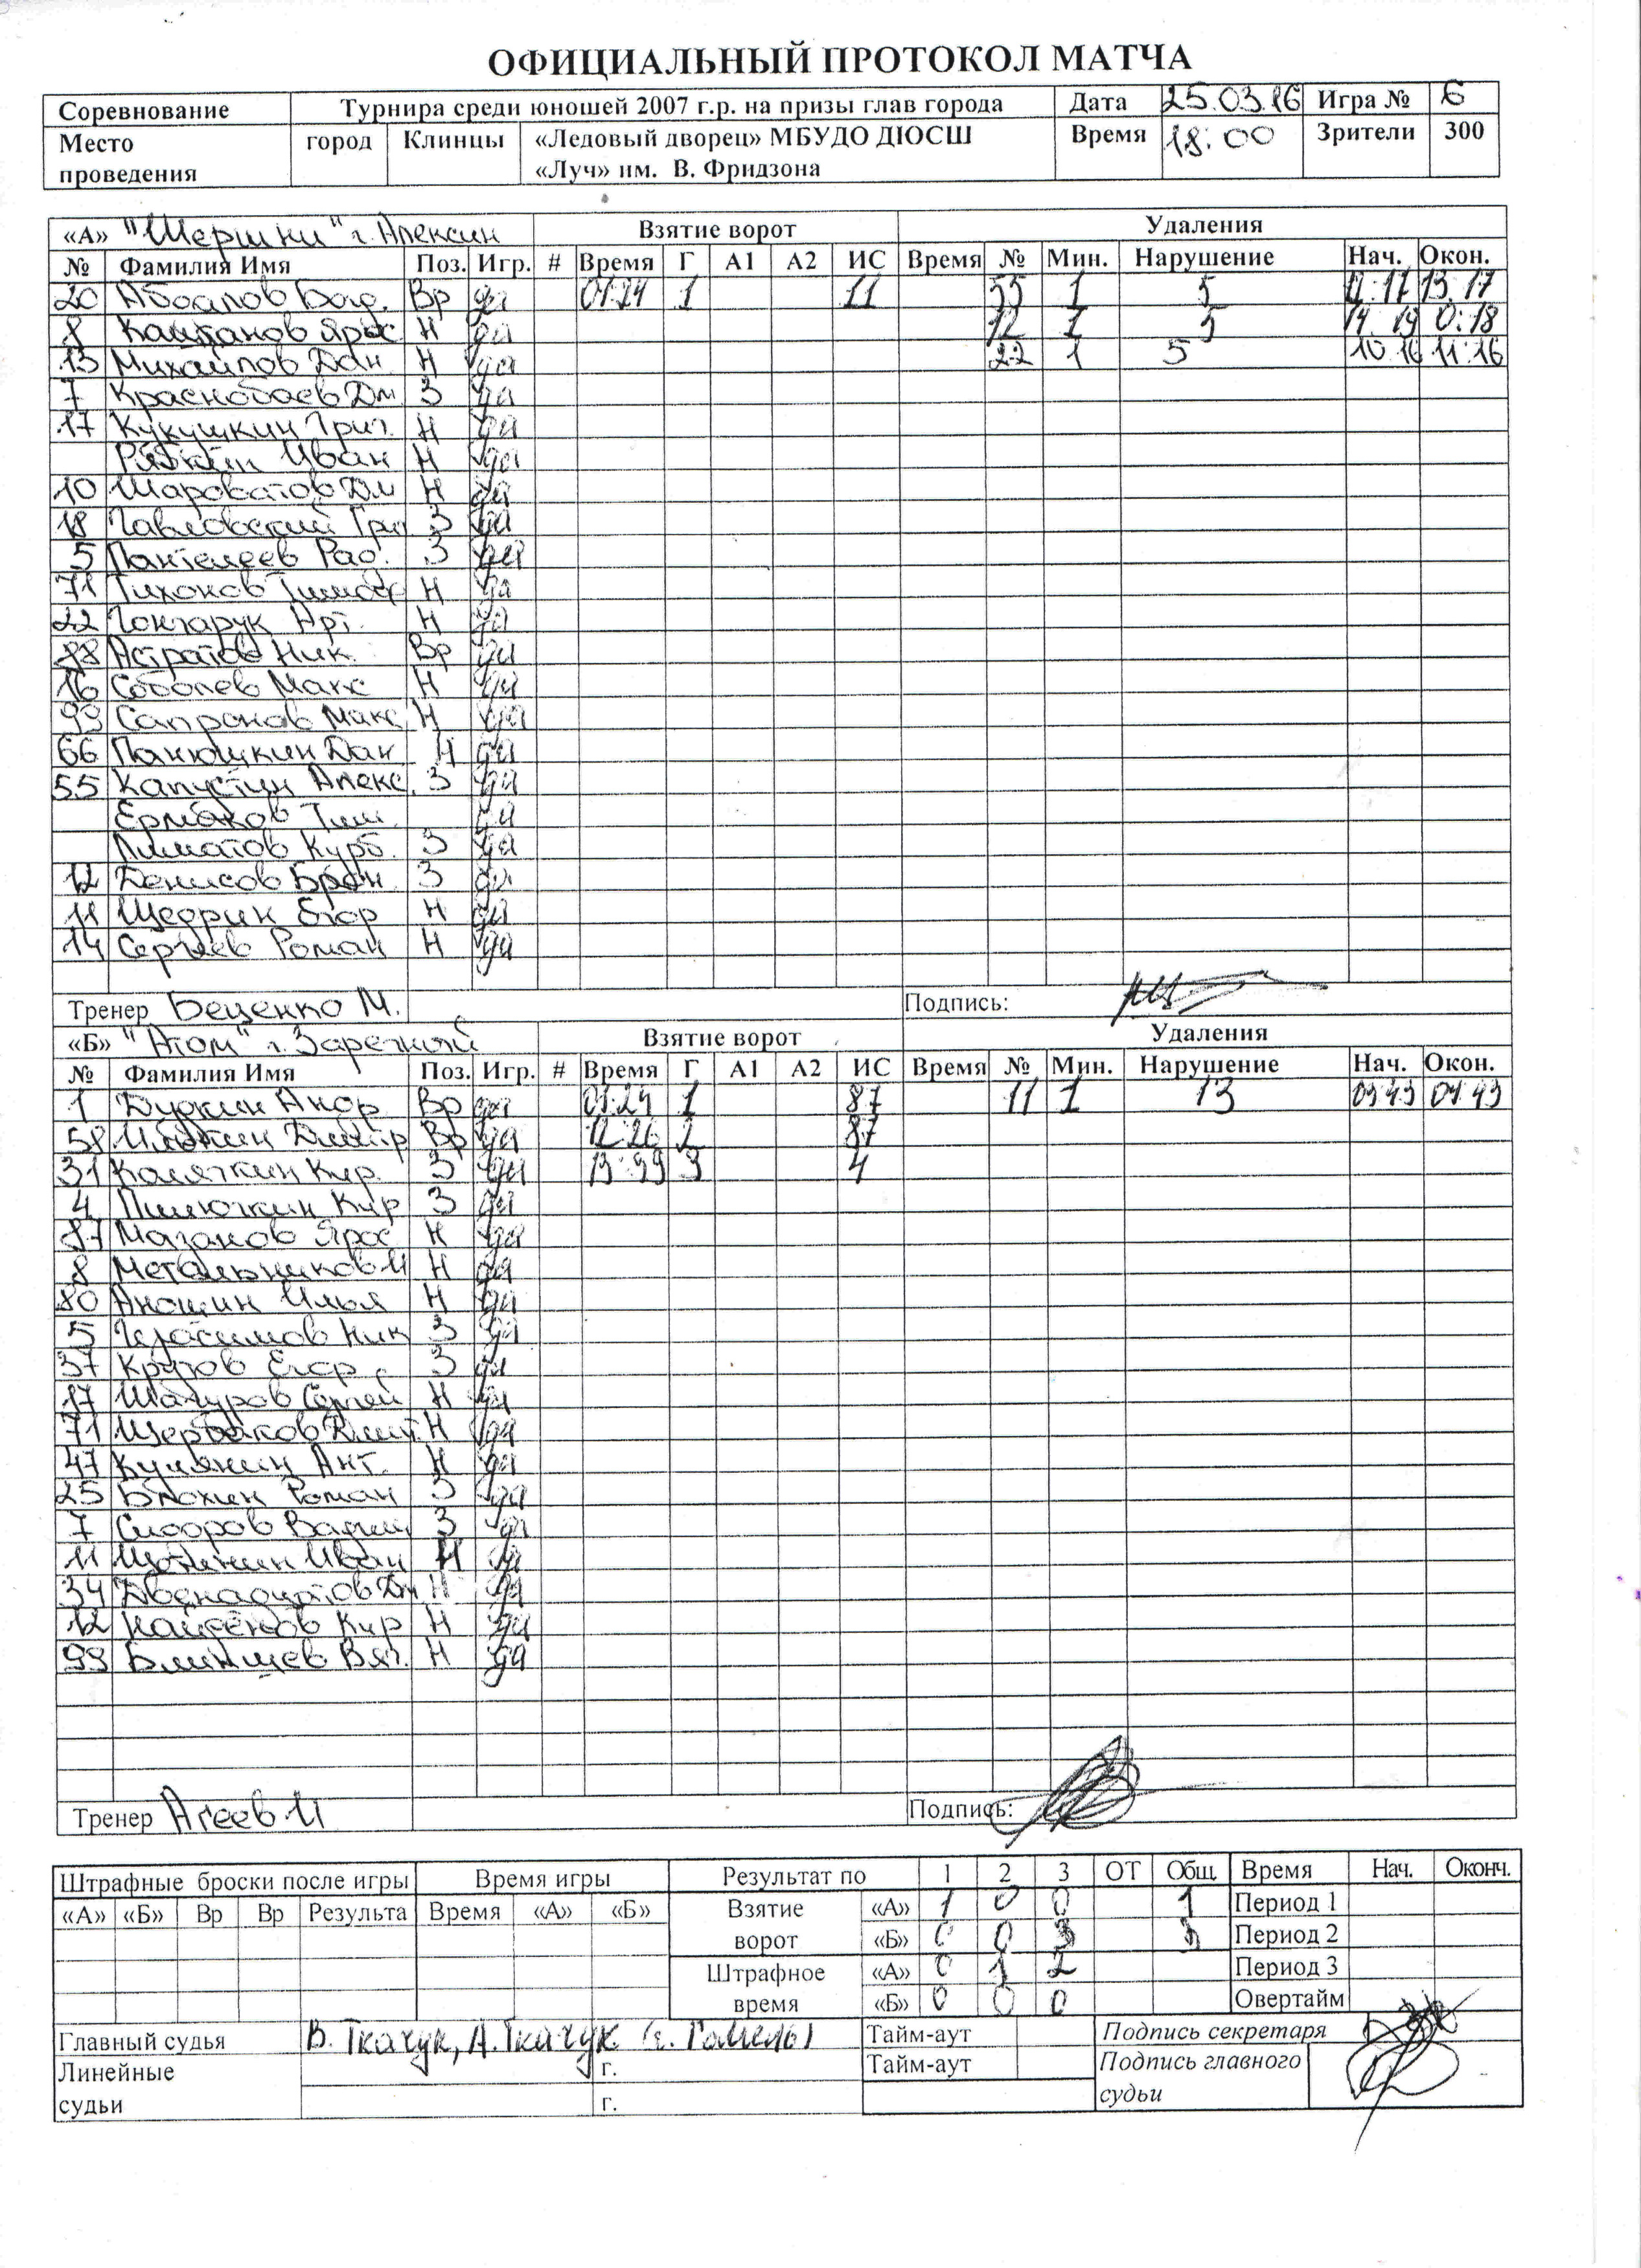 ОФИЦИАЛЬНЫЙ ПРОТОКОЛ МАТЧА
Соревнование Турнира среди юношей 2007 г.р. на призы глав города Дата 25.03.16 Игра № 6
Место проведения город Клинцы «Ледовый дворец» МБУДО ДЮСШ «Луч» им. В. Фридзона Время 18:00 Зрители 300
«А» "Шершни" г. Алексин Взятие ворот Удаления
№ Фамилия Имя Поз. Игр. # Время Г А1 А2 ИС Время № Мин. Нарушение Нач. Окон.
20 Вр да 1 11 55 1 5 13:17
8 Каштанов Ярос Н да 12 1 5
13 Михайлов Дан Н да 22 1 5 10:16 11:16
7 Краснобаев Дм З да
17 Кукушкин Григ. Н да
Иван Н да
10 Шароватов Дм Н да
18 Павловский Гри З да
5 Пантелеев Рад. З да
71 Тихонов Тимоф Н да
22 Гончарук Арт. Н да
88 Астратов Ник. Вр да
16 Соболев Макс Н да
99 Сапронов Макс Н да
66 Панюшкин Дан Н да
55 Капустин Алекс. З да
Ермаков Тим. да
Курб. З да
12 Денисов З да
11 Щедрин Егор Н да
14 Сергеев Роман Н да
Тренер Беценко М. Подпись:
«Б» "Атом" г. Заречный Взятие ворот Удаления
№ Фамилия Имя Поз. Игр. # Время Г А1 А2 ИС Время № Мин. Нарушение Нач. Окон.
1 Дуркин Андр Вр да 1 87 11 1 13
58 Вр да 12:26 2 87
31 Коляткин Кир. З да 3 4
4 Пилюгин Кир З да
87 Маганов Ярос Н да
8 Метальников И Н да
80 Аношин Илья Н да
5 Герасимов Ник З да
37 Круглов Егор З да
17 Шагуров Сергей Н да
71 Щербаков Дмит. Н да
47 Кулянин Ант. Н да
25 Блохин Роман З да
7 Сидоров Вадим З да
11 Иван Н да
34 Двенадцатов Дм Н да
12 Найденов Кир Н да
99 Блинщев Вяч. Н да
Тренер Агеев И Подпись:
Штрафные броски после игры Время игры Результат по 1 2 3 ОТ Общ. Время Нач. Оконч.
«А» «Б» Вр Вр Результа Время «А» «Б» Взятие ворот «А» 1 0 0 1 Период 1
«Б» 0 0 3 3 Период 2
Штрафное время «А» 0 1 2 Период 3
«Б» 0 0 0 Овертайм
Главный судья В. Ткачук, А. Ткачук (г. Гомель) Тайм-аут Подпись секретаря
Линейные судьи г. Тайм-аут Подпись главного судьи
г.